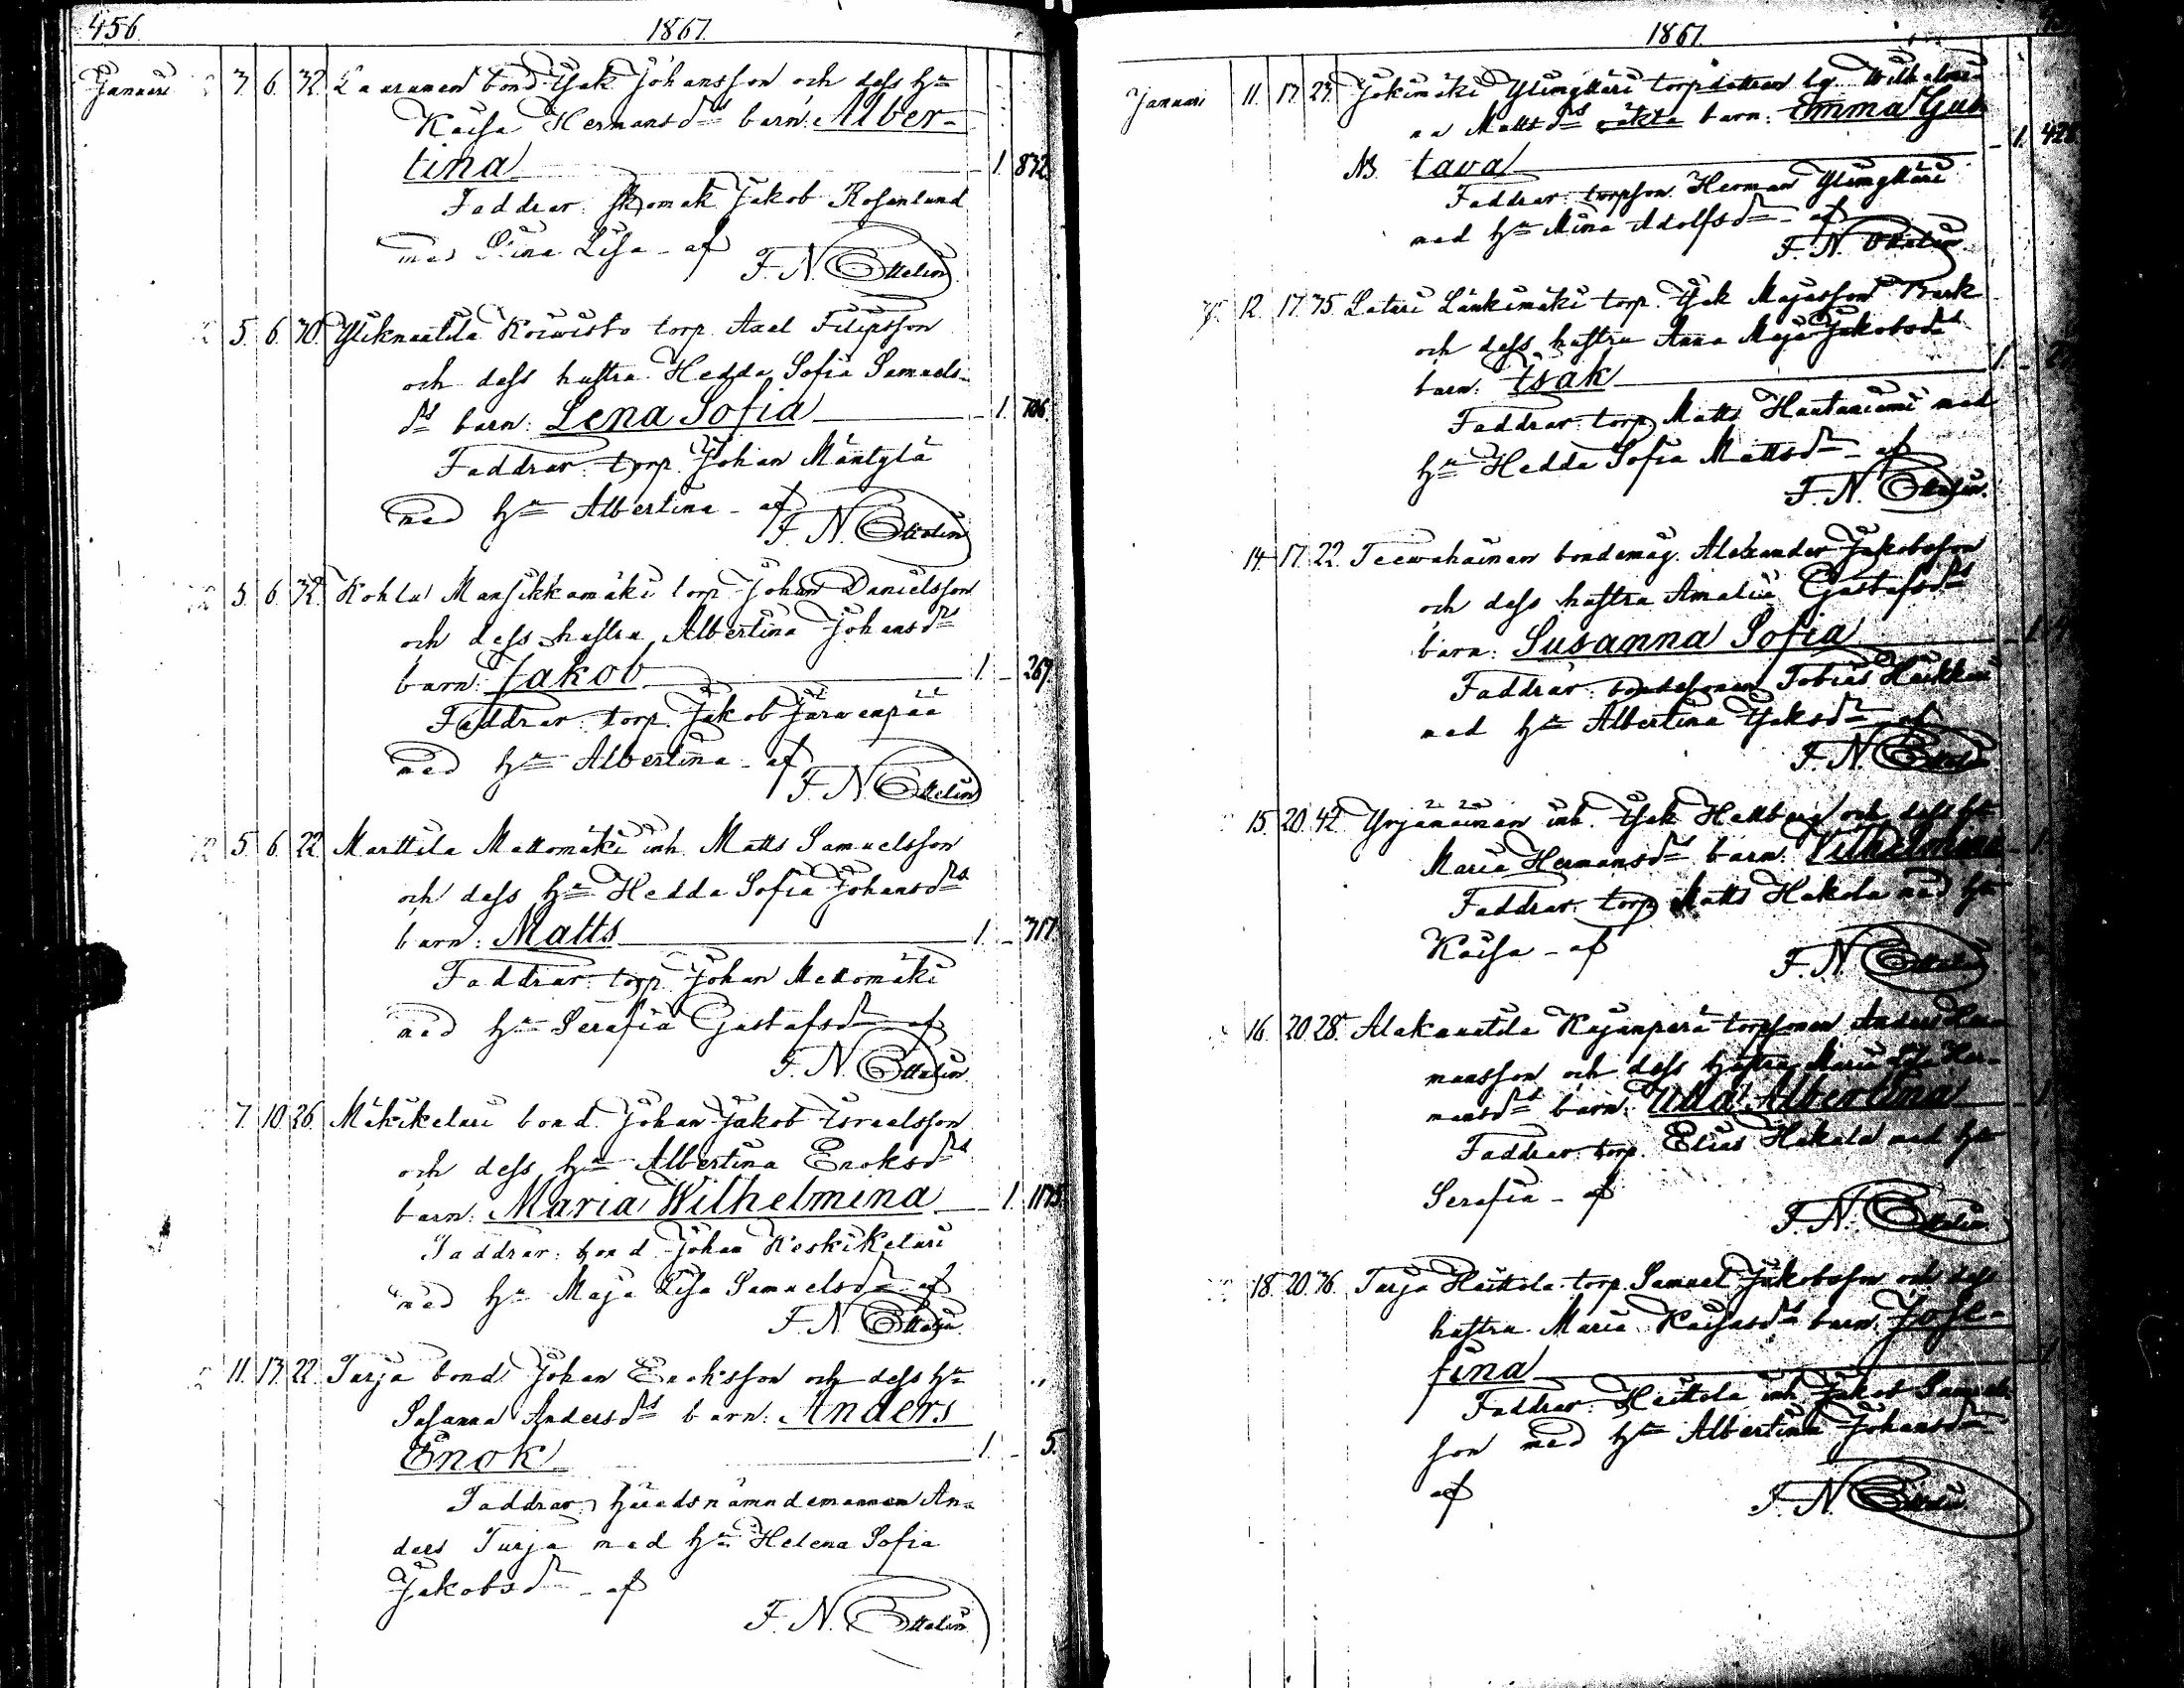 456. 1861.
Januari 3. 6. 32. Laurunen bond. Isak Johansson och dess hu
Kaisa Hermansdrs barn: Alber-
tina 1. 832.
Faddrar: skomak Jakob Rosenlund
med Stina Lisa - af F. N. Ottelin
5. 6. 30. Yliknuutila Koiwisto torp. Axel Filipsson
och dess hustru Hedda Sofia Samuels-
drs barn: Lena Sofia 1. 706.
Faddrar: torp. Johan Mäntylä
med hu Albertina - af F. N. Ottelin
5. 6. 32. Kohlu Mansikkamäki torp. Johan Danielsson
och dess hustru Albertina Johansdrs
barn: Jakob 1. 267.
Faddrar: torp. Jakob Järwenpää
med hu Albertina - af F. N. Ottelin
5. 6. 22. Marttila Mettomäki inh. Matts Samuelsson
och dess hu Hedda Sofia Johansdrs
barn: Matts 1. 317.
Faddrar: torp. Johan Mettomäki
med hu Serafia Gustafsdr - af
F. N. Ottelin
7. 10. 26. Mäkikeluri bond. Johan Jakob Israelsson
och dess hu Albertina Enoksdrs
barn: Maria Wilhelmina 1. 1175.
Faddrar: bond. Johan Keskikeluri
med hu Maja Lisa Samuelsdr - af
F. N. Ottelin
11. 13. 22. Turja bond. Johan Enoksson och dess hu
Susanna Andersdrs barn: Anders
Enok 1. 5.
Faddrar: häradsnämndemannen An-
ders Turja med hu Helena Sofia
Jakobsdr - af
F. N. Ottelin
1861.
Januari 11. 17. 23. Jokimäki Ylingkäri torpdottren lg. Wilhelmi-
na Mattsdrs oäkta barn: Emma Gus
NB. tava 1. 428
Faddrar: torpson Herman Ylingkäri
med hu Mina Adolfsdr - af
F. N. Ottelin
12. 17. 35. Luturi Länkimäki torp. Isak Majasson
och dess hustru Anna Maja Jakobsdrs
barn: Isak 1.
Faddrar: torp. Matts Hautaniemi med
hu Hedda Sofia Mattsdr - af
F. N. Ottelin
14. 17. 22. Teewahainen bondemåg. Alexander Jakobsson
och dess hustru Amalia Gustafsdrs
barn: Susanna Sofia 1.
Faddrar: bondesonen Tobias
med hu Albertina Isaksdr - af
F. N. Ottelin
15. 20. 42. Yrjänäinen inh. Isak Hallberg och dess hu
Maria Hermansdrs barn: Vilhelmina 1.
Faddrar: torp. Matts Hakola med hu
Kaisa - af F. N. Ottelin
16. 20. 28. Alaknuutila Kujanperä torpsonen Anders Her-
mansson och dess hustru Maria Lisa Her-
mansdrs barn: Ulla Albertina 1.
Faddrar: torp. Elias Hakala med hu
Serafia - af
F. N. Ottelin
18. 20. 36. Turja Heittola torp. Samuel Jakobsson och dess
hustru Maria Kaisasdrs barn: Jose-
fina 1.
Faddrar: Heittola inh. Jakob Samuels-
son med hu Albertina Johansdr
af F. N. Ottelin